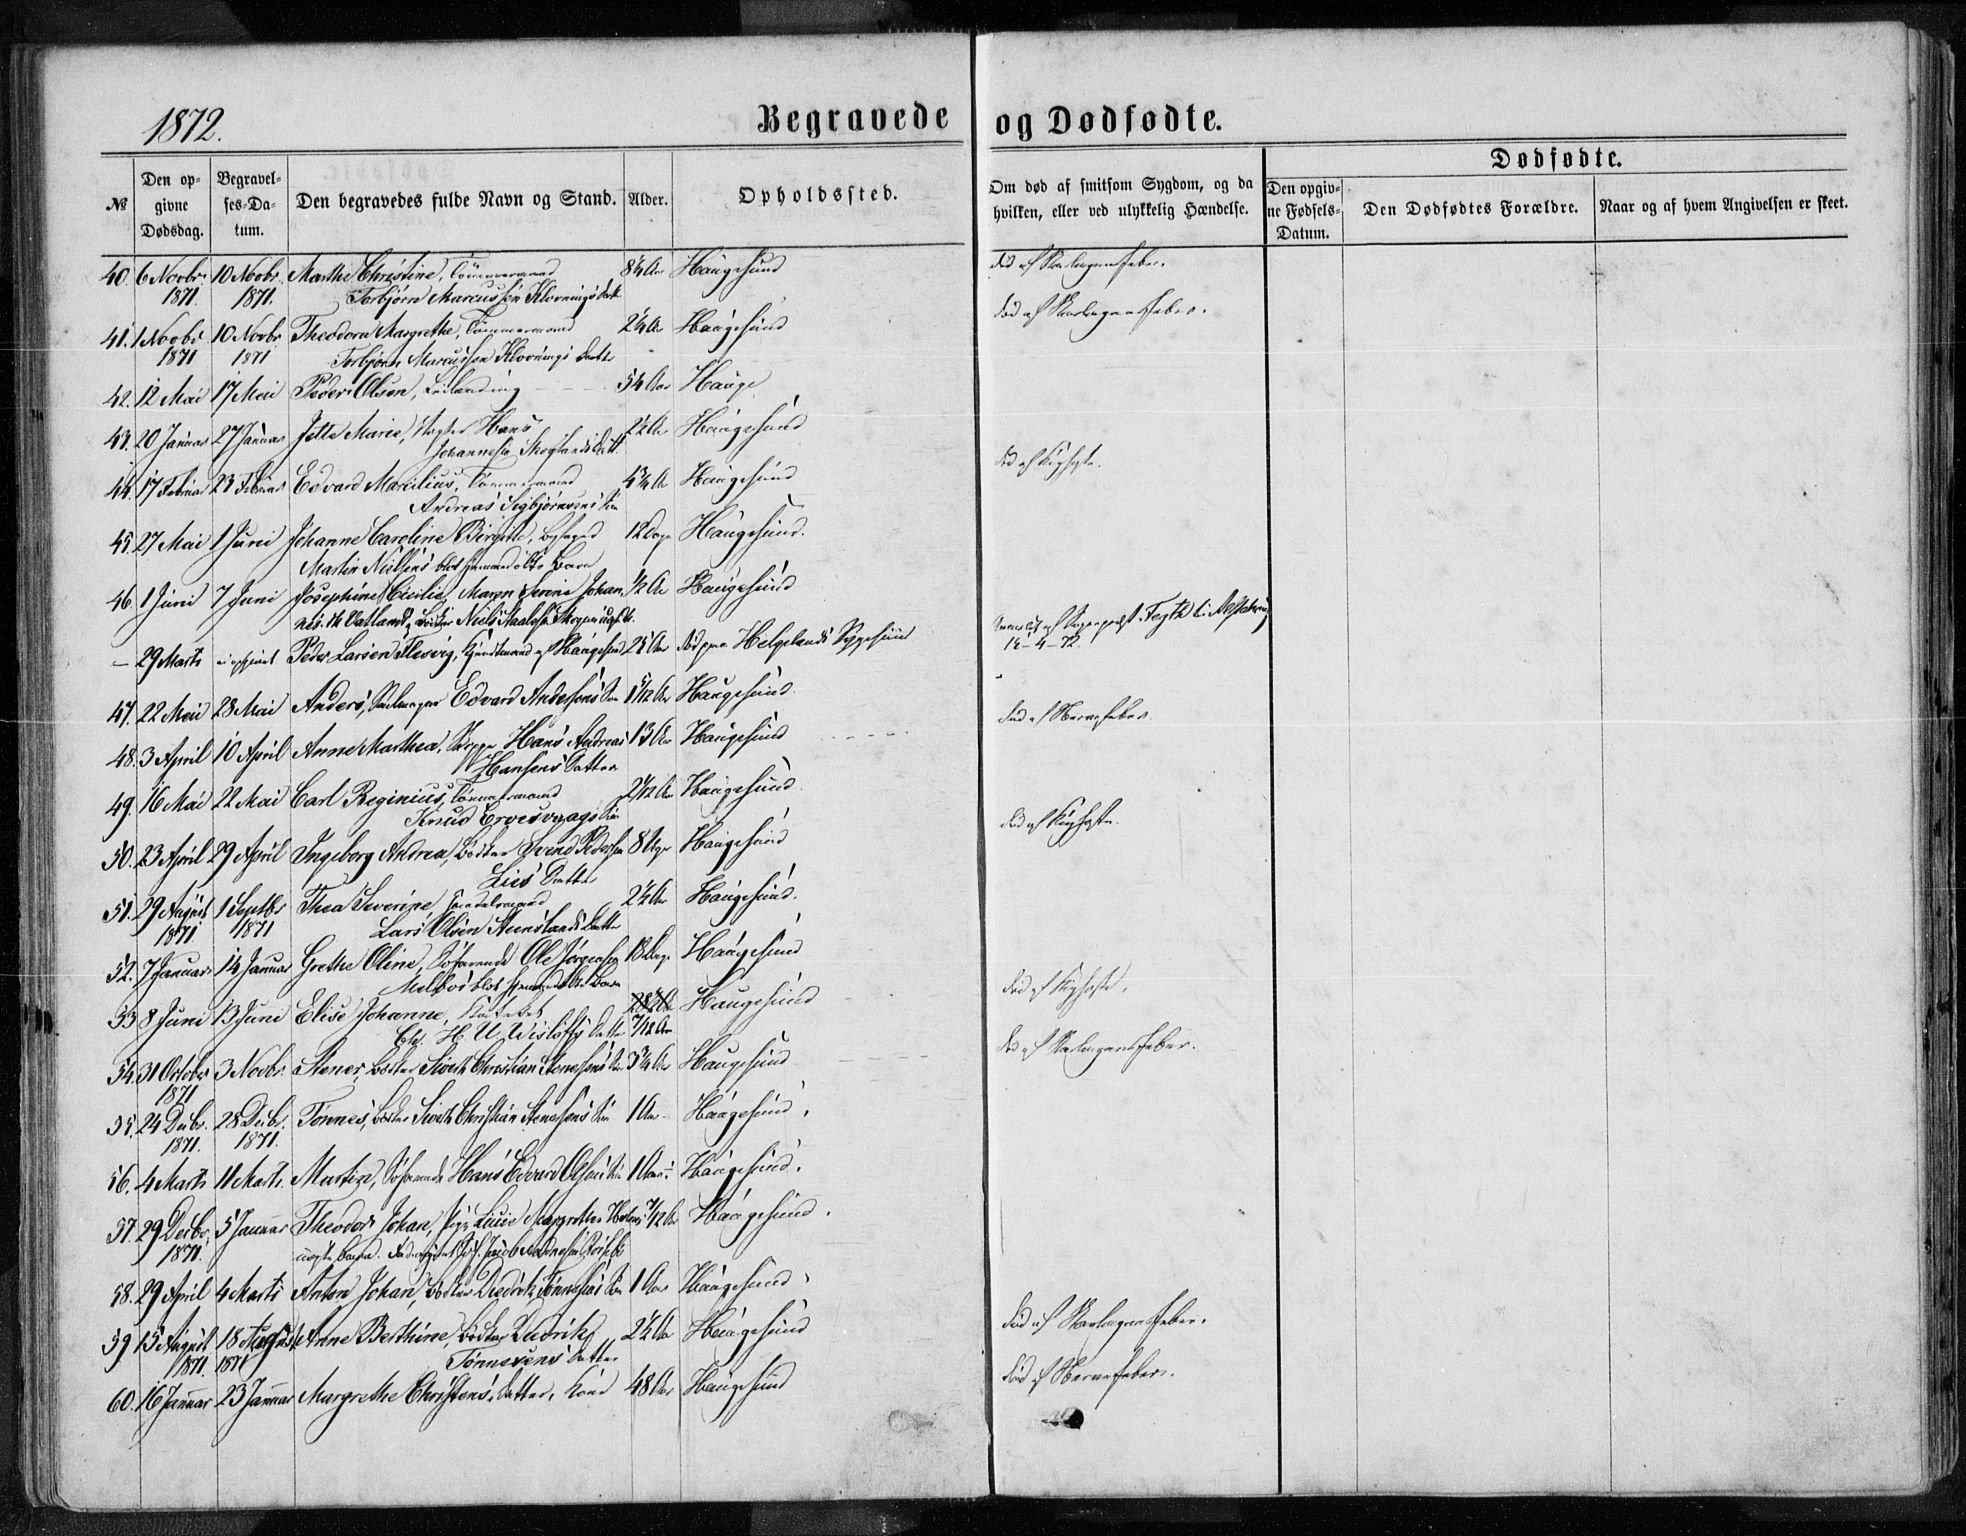 1872.
Begravede og Dødfødte.
Dødfødte.
№
Den op-
givne
Dødsdag.
Begravel-
ses-Da-
tum.
Den begravedes fulde Navn og Stand.
Alder.
Opholdssted.
Om død af smitsom Sygdom, og da
hvilken, eller ved ulykkelig Hændelse.
Den opgiv-
ne Fødsels-
Datum.
Den Dødfødtes Forældre.
Naar og af hvem Angivelsen er skeet.
40. 6 Novbr. 10 Novbr. Marthe Christine, Tømmermand Haugesund Død af Skarlagensfeber.
1871. 1871. Torbjørn Marcussen Klovnings Datt
41. 1 Novbr 10 Novbr Theodora Margrethe, Tømmermand 2¼ Aar Haugesund Død af Skarlagensfeber.
1871 1871 Torbjørn Marcussen Klovnings Datte
42. 12 Mai 17 Mai Peder Olsen, 54 Aar Hauge
43. 20 Januar 27 Januar Jette Marie, Hans Haugesund
Johannesen Skoglands Datt.
44. 17 Februar 23 Februar Edvard Marilius, Tømmermand Haugesund Død af Kighoste.
Andreas Sigbjørnsens Søn
45. 27 Mai 1 Juni Johanne Caroline Birgitte, 12 Dage Haugesund.
Martin Nielsens blot hjemmedøbte Barn
46. 1 Juni 7 Juni Josephine Cecilie, Maren Serine Johan- ½ Aar Haugesund
Niels
— 29 Marts Peder Larsen Flesvig, af Haugesund Død paa Helgelands Sygehuus
14-4-72.
47. 22 Mai 28 Mai Anders, Edvard Andersens Søn Haugesund
48. 3 April 10 April Anne Marthea, Skipper Hans Andreas 13 Aar Haugesund Død af Nervefeber
Hansens Datter
49. 16 Mai 22 Mai Carl Reginius, Tømmermand 2/12 Aar Haugesund
Knud Ervesvaags Søn
50. 23 April 29 April Ingeborg Andrea, Bødker Svend Pedersen 8 Uger Haugesund Død af Kighoste.
Lies Datter
51. 29 August 1 Septbr Thea Severine, Handelsmand 2¼ Aar Haugesund.
1871. 1871 Lars Olsen Datter
52. 7 Januar 14 Januar Grethe Oline, Søfarende Ole Jørgensen 18 Dage Haugesund
blot hjemmedøbte Barn
53 8 Juni 13 Juni Elise Johanne, Haugesund Død af Kighoste.
Chr. H. U. Wisløffs Datter 7/12 Aar
54. 31 October 3 Novbr. Stener, Bødker Sivert Christian Stenersens Søn 3¾ Aar Haugesund Død af Skarlagensfeber.
1871
55. 24 Decbr. 28 Decbr. Tønnes, Bødker Sivert Christian Stenersens Søn 1 Aar Haugesund.
1871. 1871.
56. 4 Marts 11 Marts. Martin, Søfarende Hans Edvard Olsens Søn 1 Aar Haugesund.
57. 29 Decbr. 5 Januar Theodor Johan, Pige Margrethe 7/12 Aar Haugesund.
1871. uægte Barn. Jacob
58. 29 April 4 Marts Anton Johan, Bødker Diedrik Tønnesens Søn 1 Aar Haugesund
59. 15 August 18 August Anne Berthine, Bødker Diedrik 2¼ Aar Haugesund Død af Skarlagensfeber.
1871. 1871 Tønnesens Datter
60. 16 Januar 23 Januar Margrethe Christens Datter, Kone 48 Aar Haugesund Død af Nervefeber.